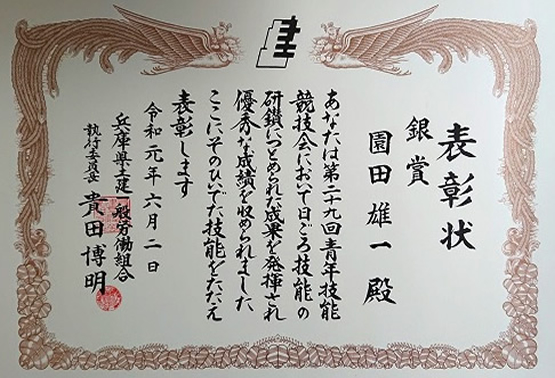 表彰状
銀賞
園田雄一殿
あなたは第二十九回青年技能
競技会において日ごろ技能の
研鎖につとめられた成果を発揮され
優秀な成績を収められました
ここにそのひいでた技能をたたえ
表彰します
令和元年六月二日
兵庫県土建一般労働組合
執行委員長 貴田博明